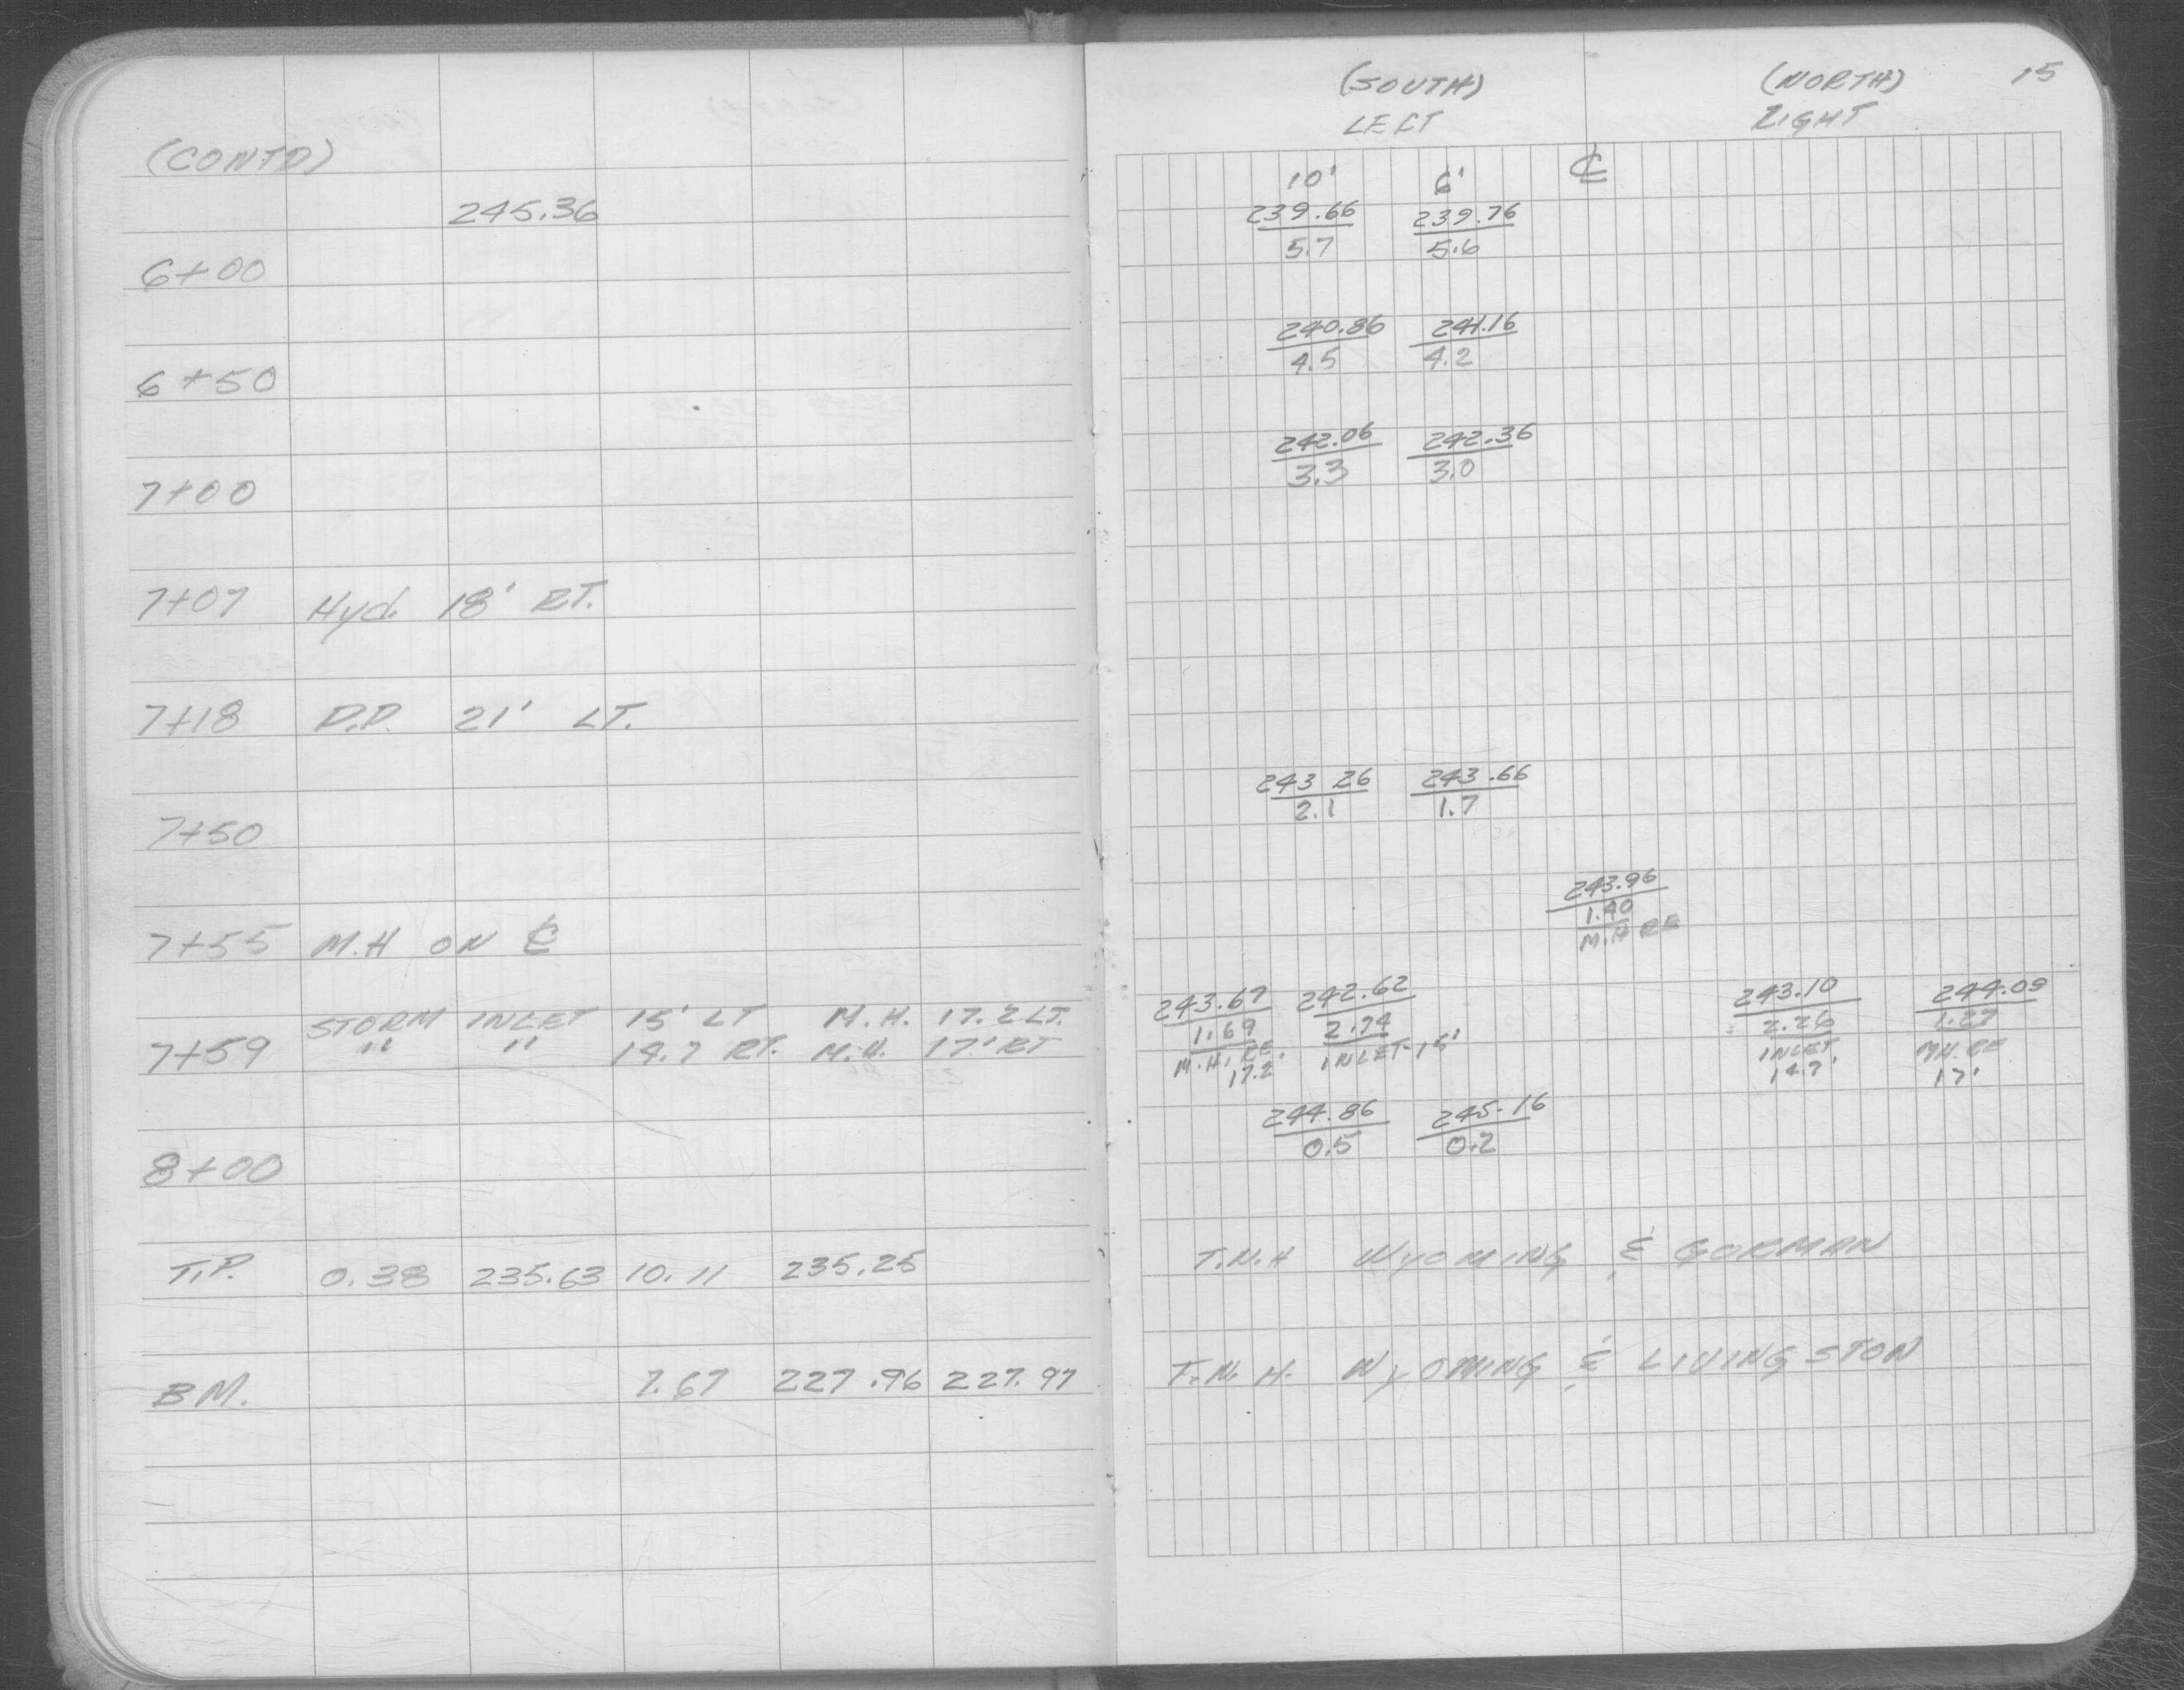 (CONTD)
245.36
6+00
6+50
7+00
7+07 Hyd. 18' RT.
7+18 P.P. 21' LT.
7+50
7+55 M.H ON ℄
STORM INLET 15' LT M.H. 17.2 LT.
7+59 " " 14.7 RT. M.H. 17' RT
8+00
T.P. 0.38 235.63 10.11 235.25
B M. 7.67 227.96 227.97
15
(SOUTH) (NORTH)
LEFT RIGHT
10' 6' ℄
239.66 239.76
5.7 5.6
240.86 241.16
4.5 4.2
242.06 242.36
3.3 3.0
243 26 243.66
2.1 1.7
243.96
1.40
M.H RE
243.67 242.62 243.10 244.09
1.69 2.74 2.26 1.27
M.H. RE. INLET-15' INLET MH. RE
17.2 14.7' 17'
244.86 245.16
0.5 0.2
T.N.H WYOMING & GORMAN
T.N.H. WYOMING & LIVINGSTON